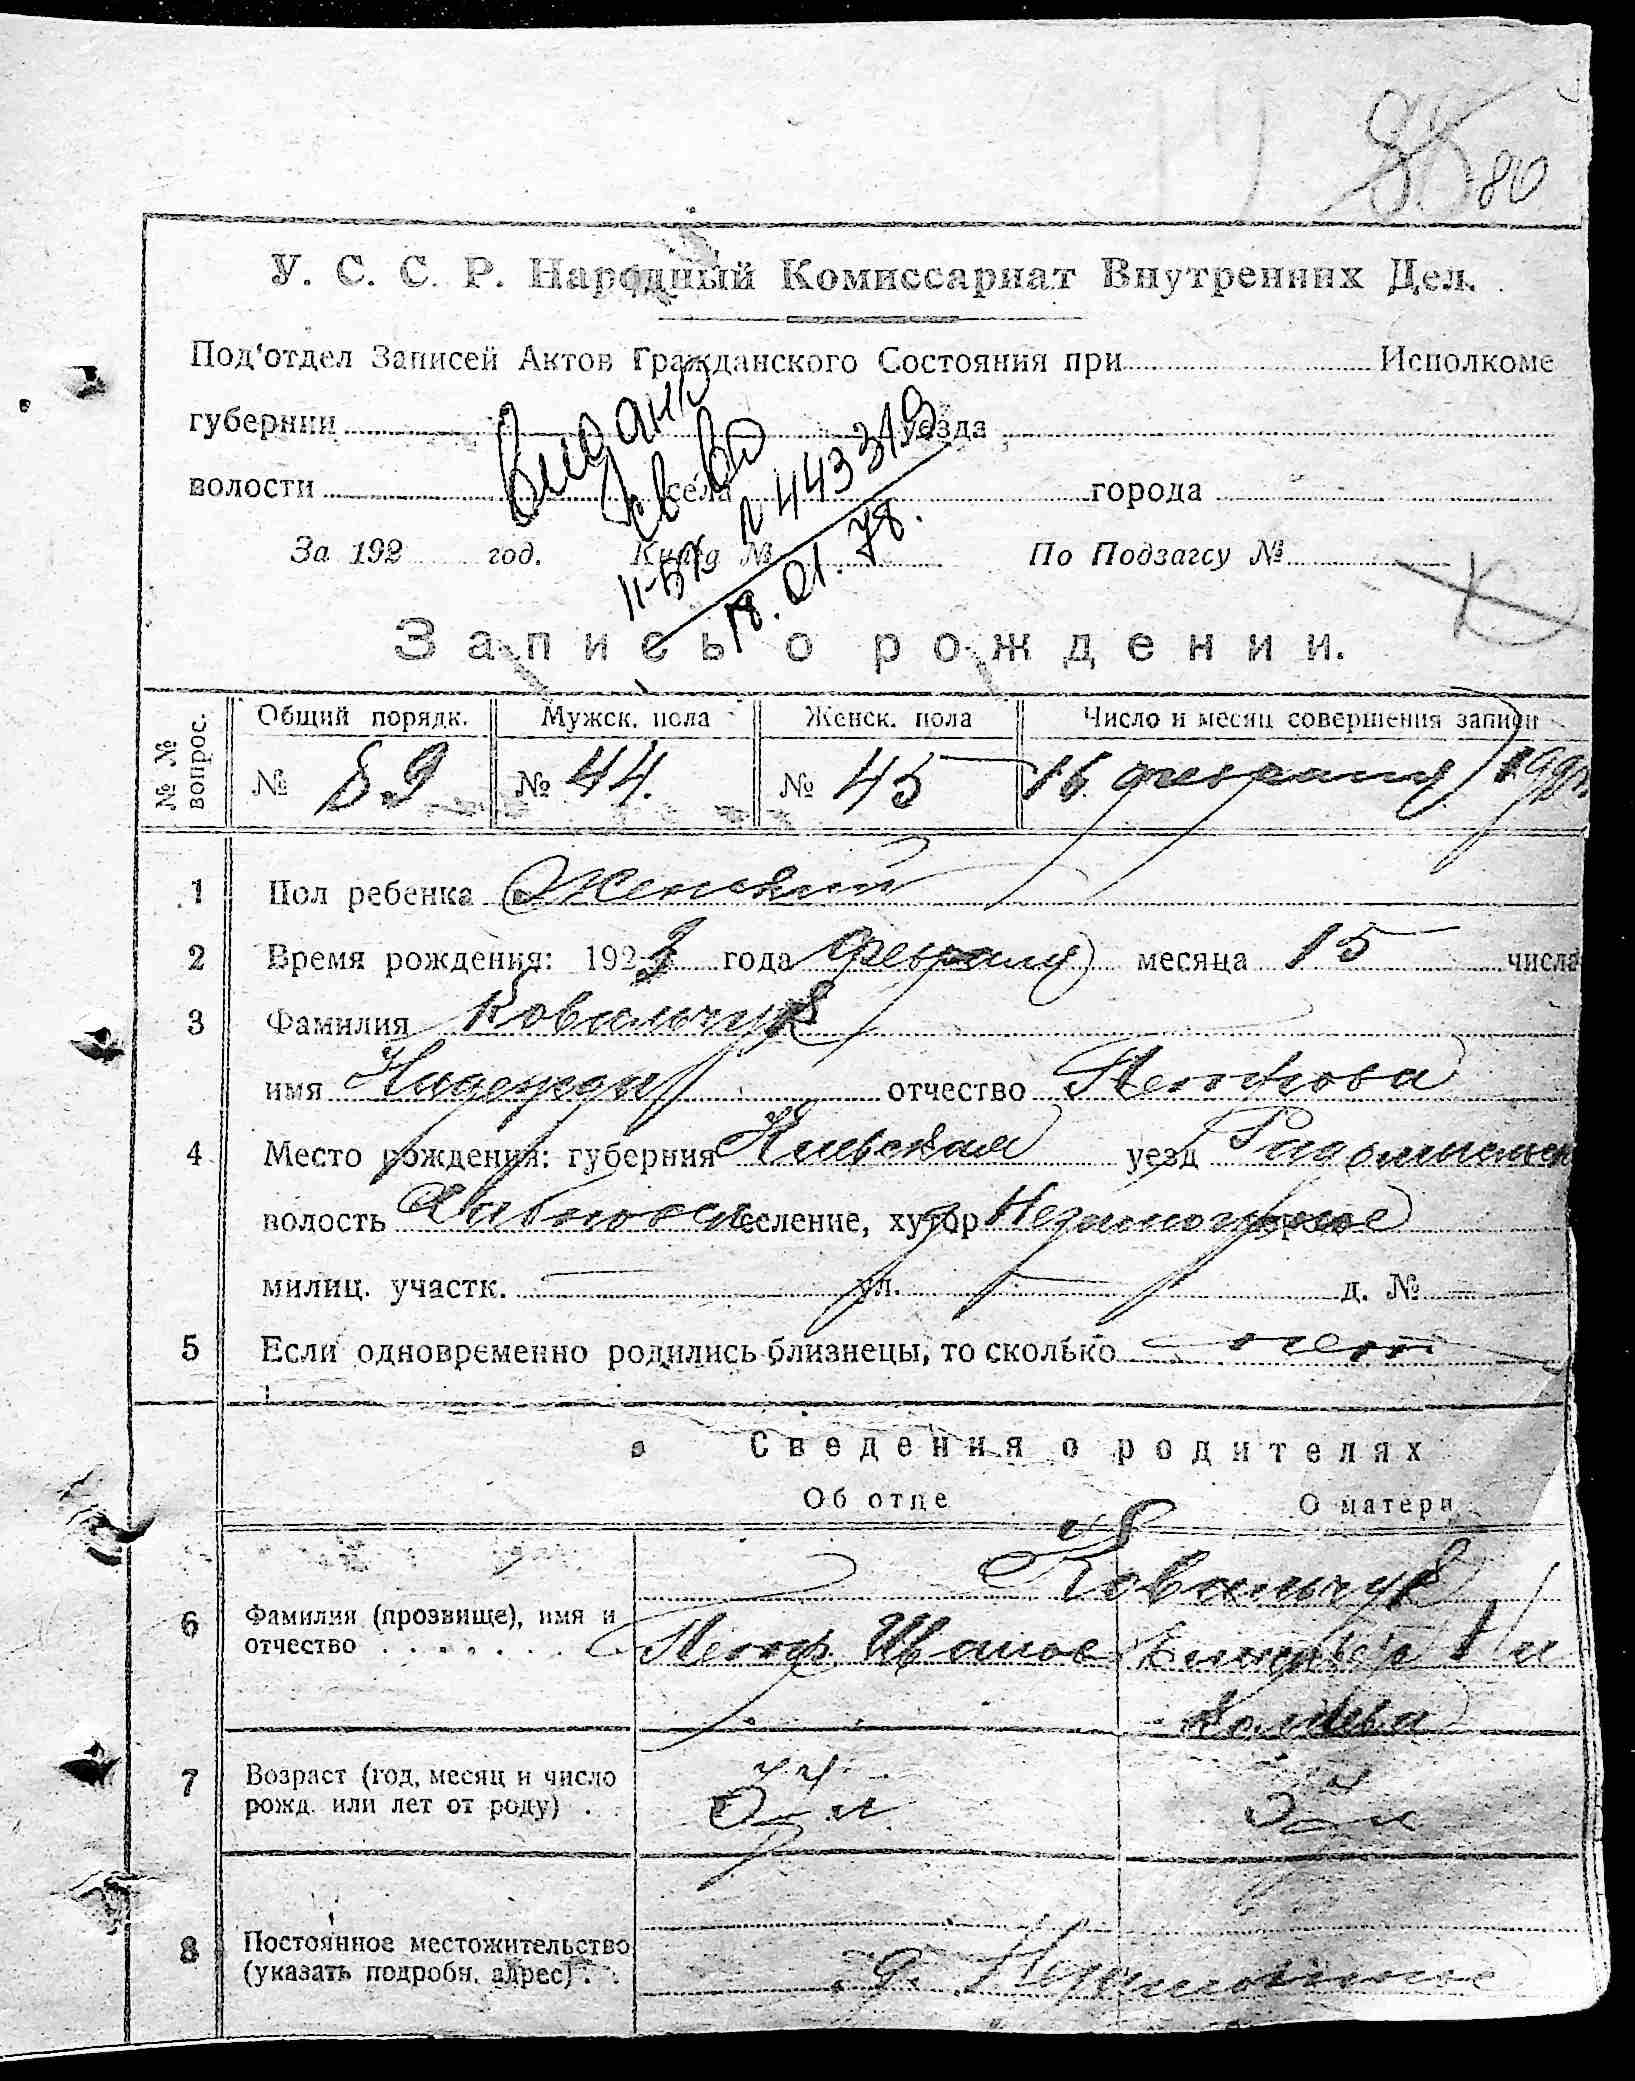 80
У. С. С. Р. Народный Комиссариат Внутренних Дел.
Под'отдел Записей Актов Гражданского Состояния при Исполкоме
губернии уезда
волости села города
За 192 год. Книга № По Подзагсу №
443319
18.01.78.
Запись о рождении.
№ № вопрос. Общий порядк. Мужск. пола Женск. пола Число и месяц совершения записи
№ 89 № 44. № 45 16 февраля
1 Пол ребенка Женский
2 Время рождения: 1923 года февраля месяца 15 числа
3 Фамилия Ковальчук
имя Надежда отчество Петрова
4 Место рождения: губерния Киевская уезд Радомысльск
волость селение, хутор
милиц. участк. — ул. — д. № —
5 Если одновременно родились близнецы, то сколько нет
Сведения о родителях
Об отце О матери
Ковальчук
6 Фамилия (прозвище), имя и
отчество Петр Иванов
7 Возраст (год, месяц и число
рожд. или лет от роду)
8 Постоянное местожительство
(указать подробн. адрес)